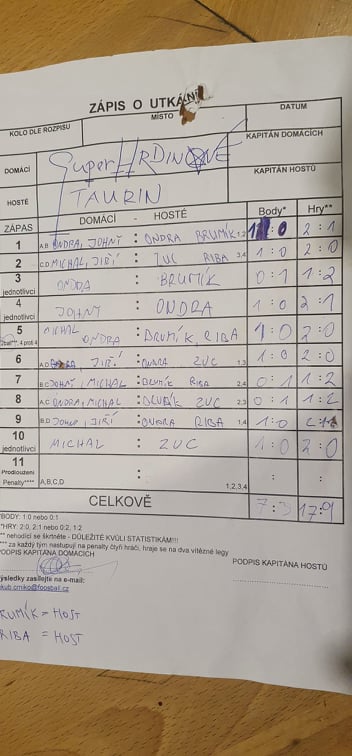 ZÁPIS O UTKÁNÍ
KOLO DLE ROZPISU MÍSTO DATUM
DOMÁCÍ SuperHRDINOVÉ KAPITÁN DOMÁCÍCH
HOSTÉ TAURIN KAPITÁN HOSTŮ
ZÁPAS DOMÁCÍ - HOSTÉ Body* Hry**
1 A,B ONDRA, JOHNY : ONDRA BRUMÍK 1,2 1:0 2:1
2 C,D MICHAL, JIŘÍ : ZUC RIBA 3,4 1:0 2:0
3 jednotlivci ONDRA : BRUMÍK 0:1 1:2
4 jednotlivci JOHNY : ONDRA 1:0 2:1
5 4 proti 4 MICHAL ONDRA : BRUMÍK, RIBA 1:0 2:0
6 A,D JIŘÍ : ONDRA ZUC 1,3 1:0 2:0
7 B,C JOHNY, MICHAL : BRUMÍK RIBA 2,4 0:1 1:2
8 A,C ONDRA, MICHAL : BRUMÍK ZUC 2,3 0:1 1:2
9 B,D JOHNY, JIŘÍ : ONDRA RIBA 1,4 1:0
10 jednotlivci MICHAL : ZUC 1:0 2:0
11 Prodloužení Penalty**** A,B,C,D : 1,2,3,4 : :
CELKOVĚ 7:3 17:9
*BODY: 1:0 nebo 0:1
*HRY: 2:0, 2:1 nebo 0:2, 1:2
** nehodící se škrtněte - DŮLEŽITÉ KVŮLI STATISTIKÁM!!!
*** za každý tým nastupují na penalty čtyři hráči, hraje se na dva vítězné legy
PODPIS KAPITÁNA DOMÁCÍCH PODPIS KAPITÁNA HOSTŮ
ýsledky zasílejte na e-mail:
kub.crniko@foosball.cz
RUMÍK = HOST
RIBA = HOST